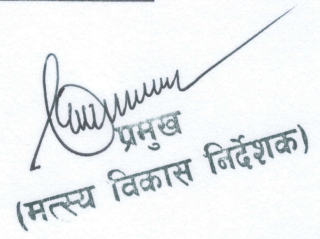 प्रमुख
(मत्स्य विकास निर्देशक)